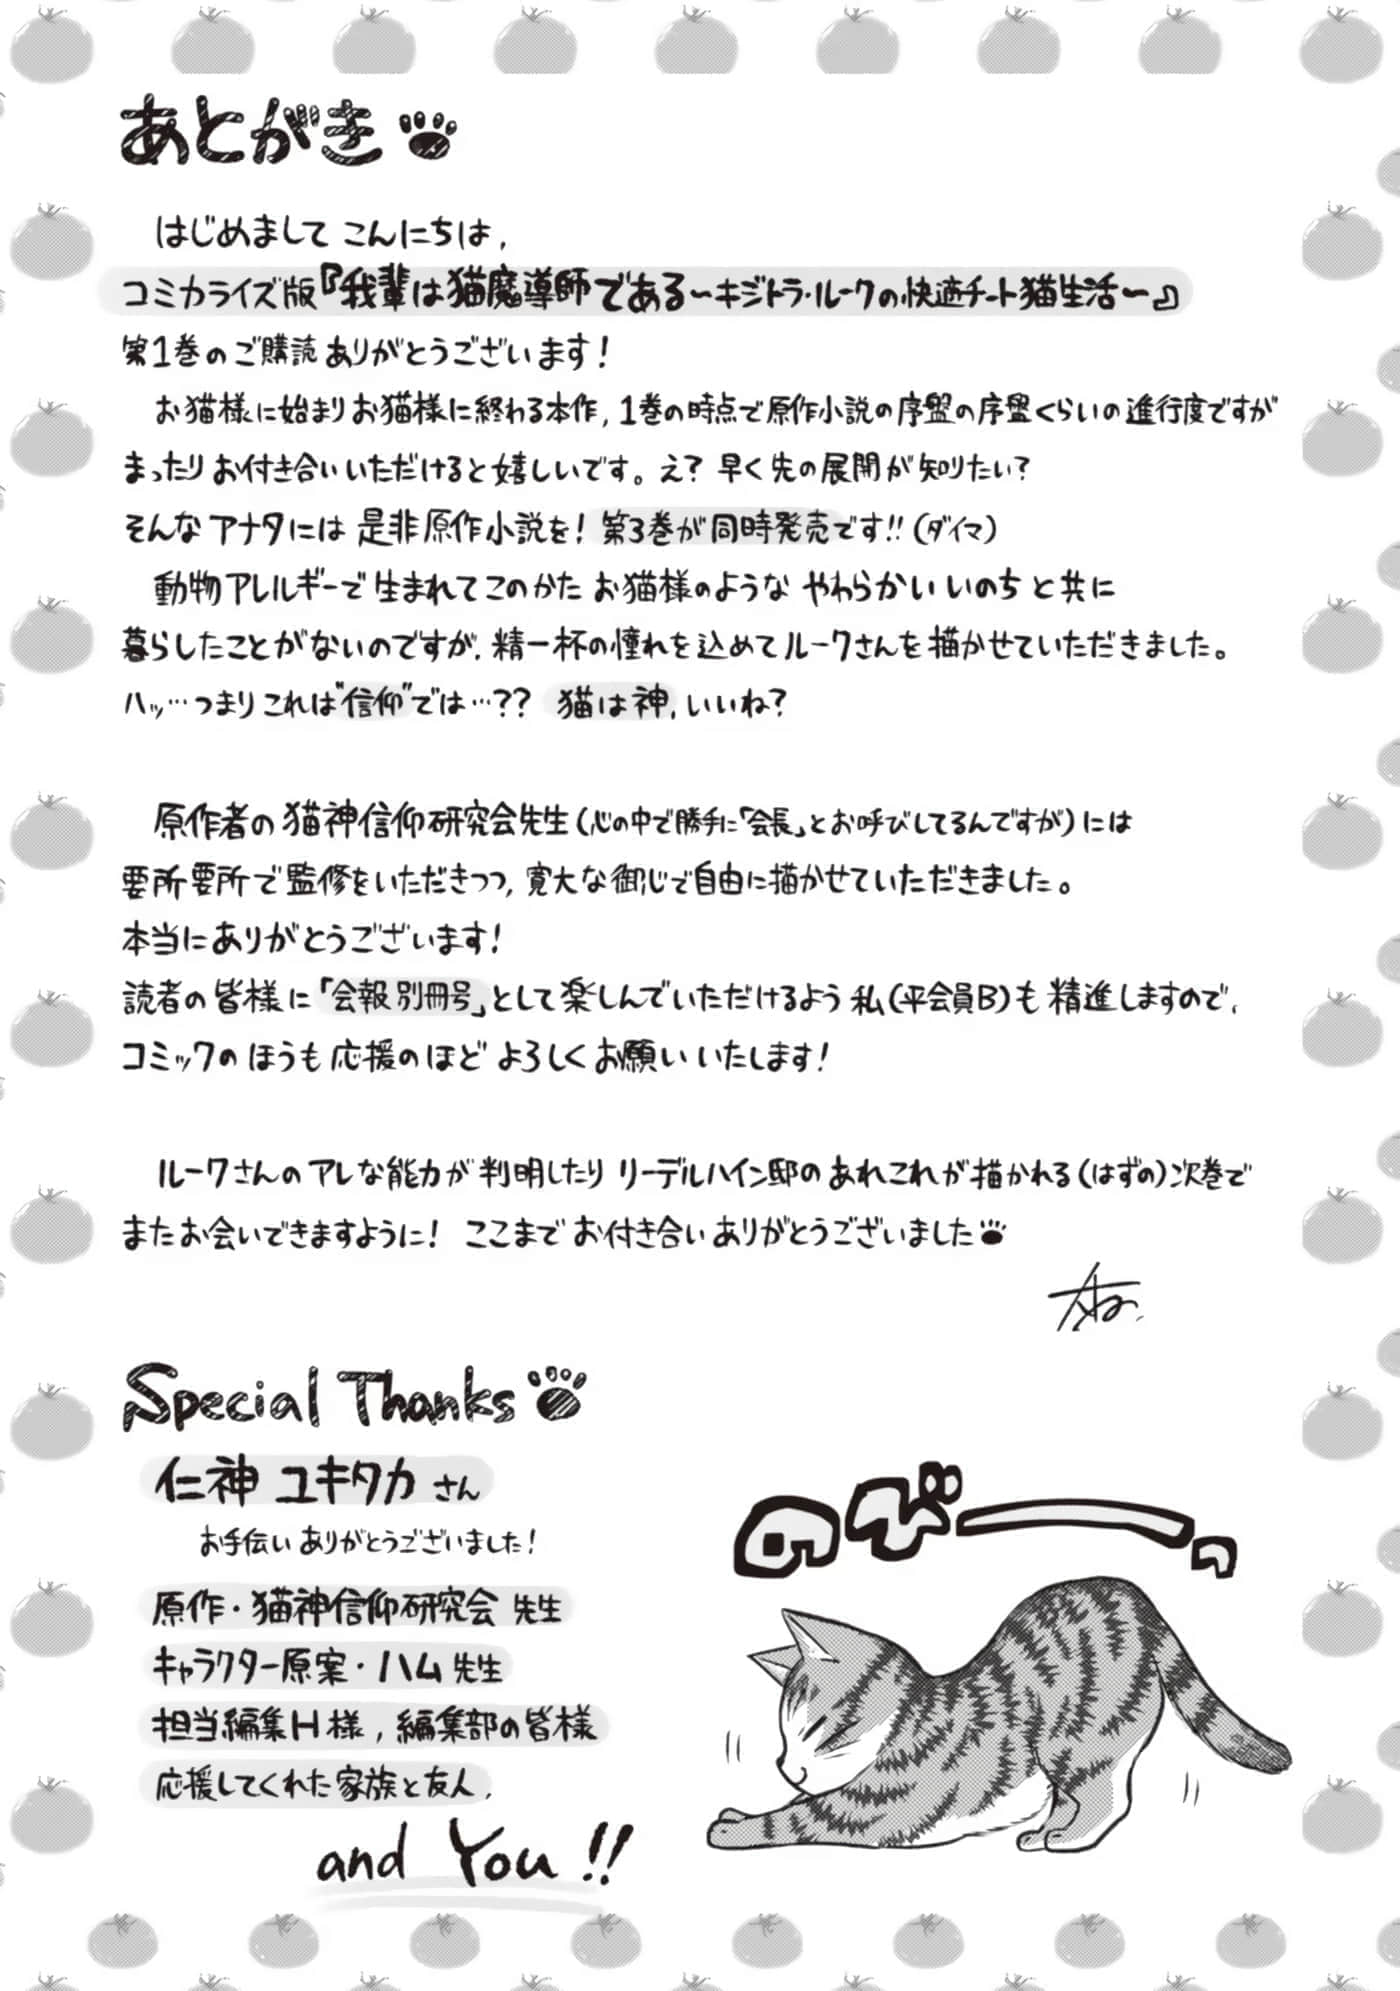 あとがき
はじめまして こんにちは,
コミカライズ版『我輩は猫魔導師である~キジトラ・ルークの快適チート猫生活~』
第1巻のご購読ありがとうございます!
お猫様に始まりお猫様に終わる本作,1巻の時点で原作小説の序盤の序盤くらいの進行度ですが
まったりお付き合いいただけると嬉しいです。え?早く先の展開が知りたい?
そんなアナタには是非原作小説を!第3巻が同時発売です!!(ダイマ)
動物アレルギーで生まれてこのかた お猫様のような やわらかい いのち と共に
暮らしたことがないのですが,精一杯の憧れを込めてルークさんを描かせていただきました。
ハッ…つまりこれは"信仰"では…?? 猫は神,いいね?
原作者の猫神信仰研究会先生(心の中で勝手に「会長」とお呼びしてるんですが)には
要所要所で監修をいただきつつ,寛大な御心で自由に描かせていただきました。
本当にありがとうございます!
読者の皆様に「会報別冊号」として楽しんでいただけるよう私(平会員B)も精進しますので,
コミックのほうも応援のほど よろしくお願いいたします!
ルークさんのアレな能力が判明したり リーデルハイン邸のあれこれが描かれる(はずの)次巻で
またお会いできますように! ここまでお付き合いありがとうございました
Special Thanks
仁神 ユキタカ さん
お手伝いありがとうございました!
原作・猫神信仰研究会 先生
キャラクター原案・ハム 先生
担当編集H様,編集部の皆様
応援してくれた家族と友人,
and You!!
のびーっ